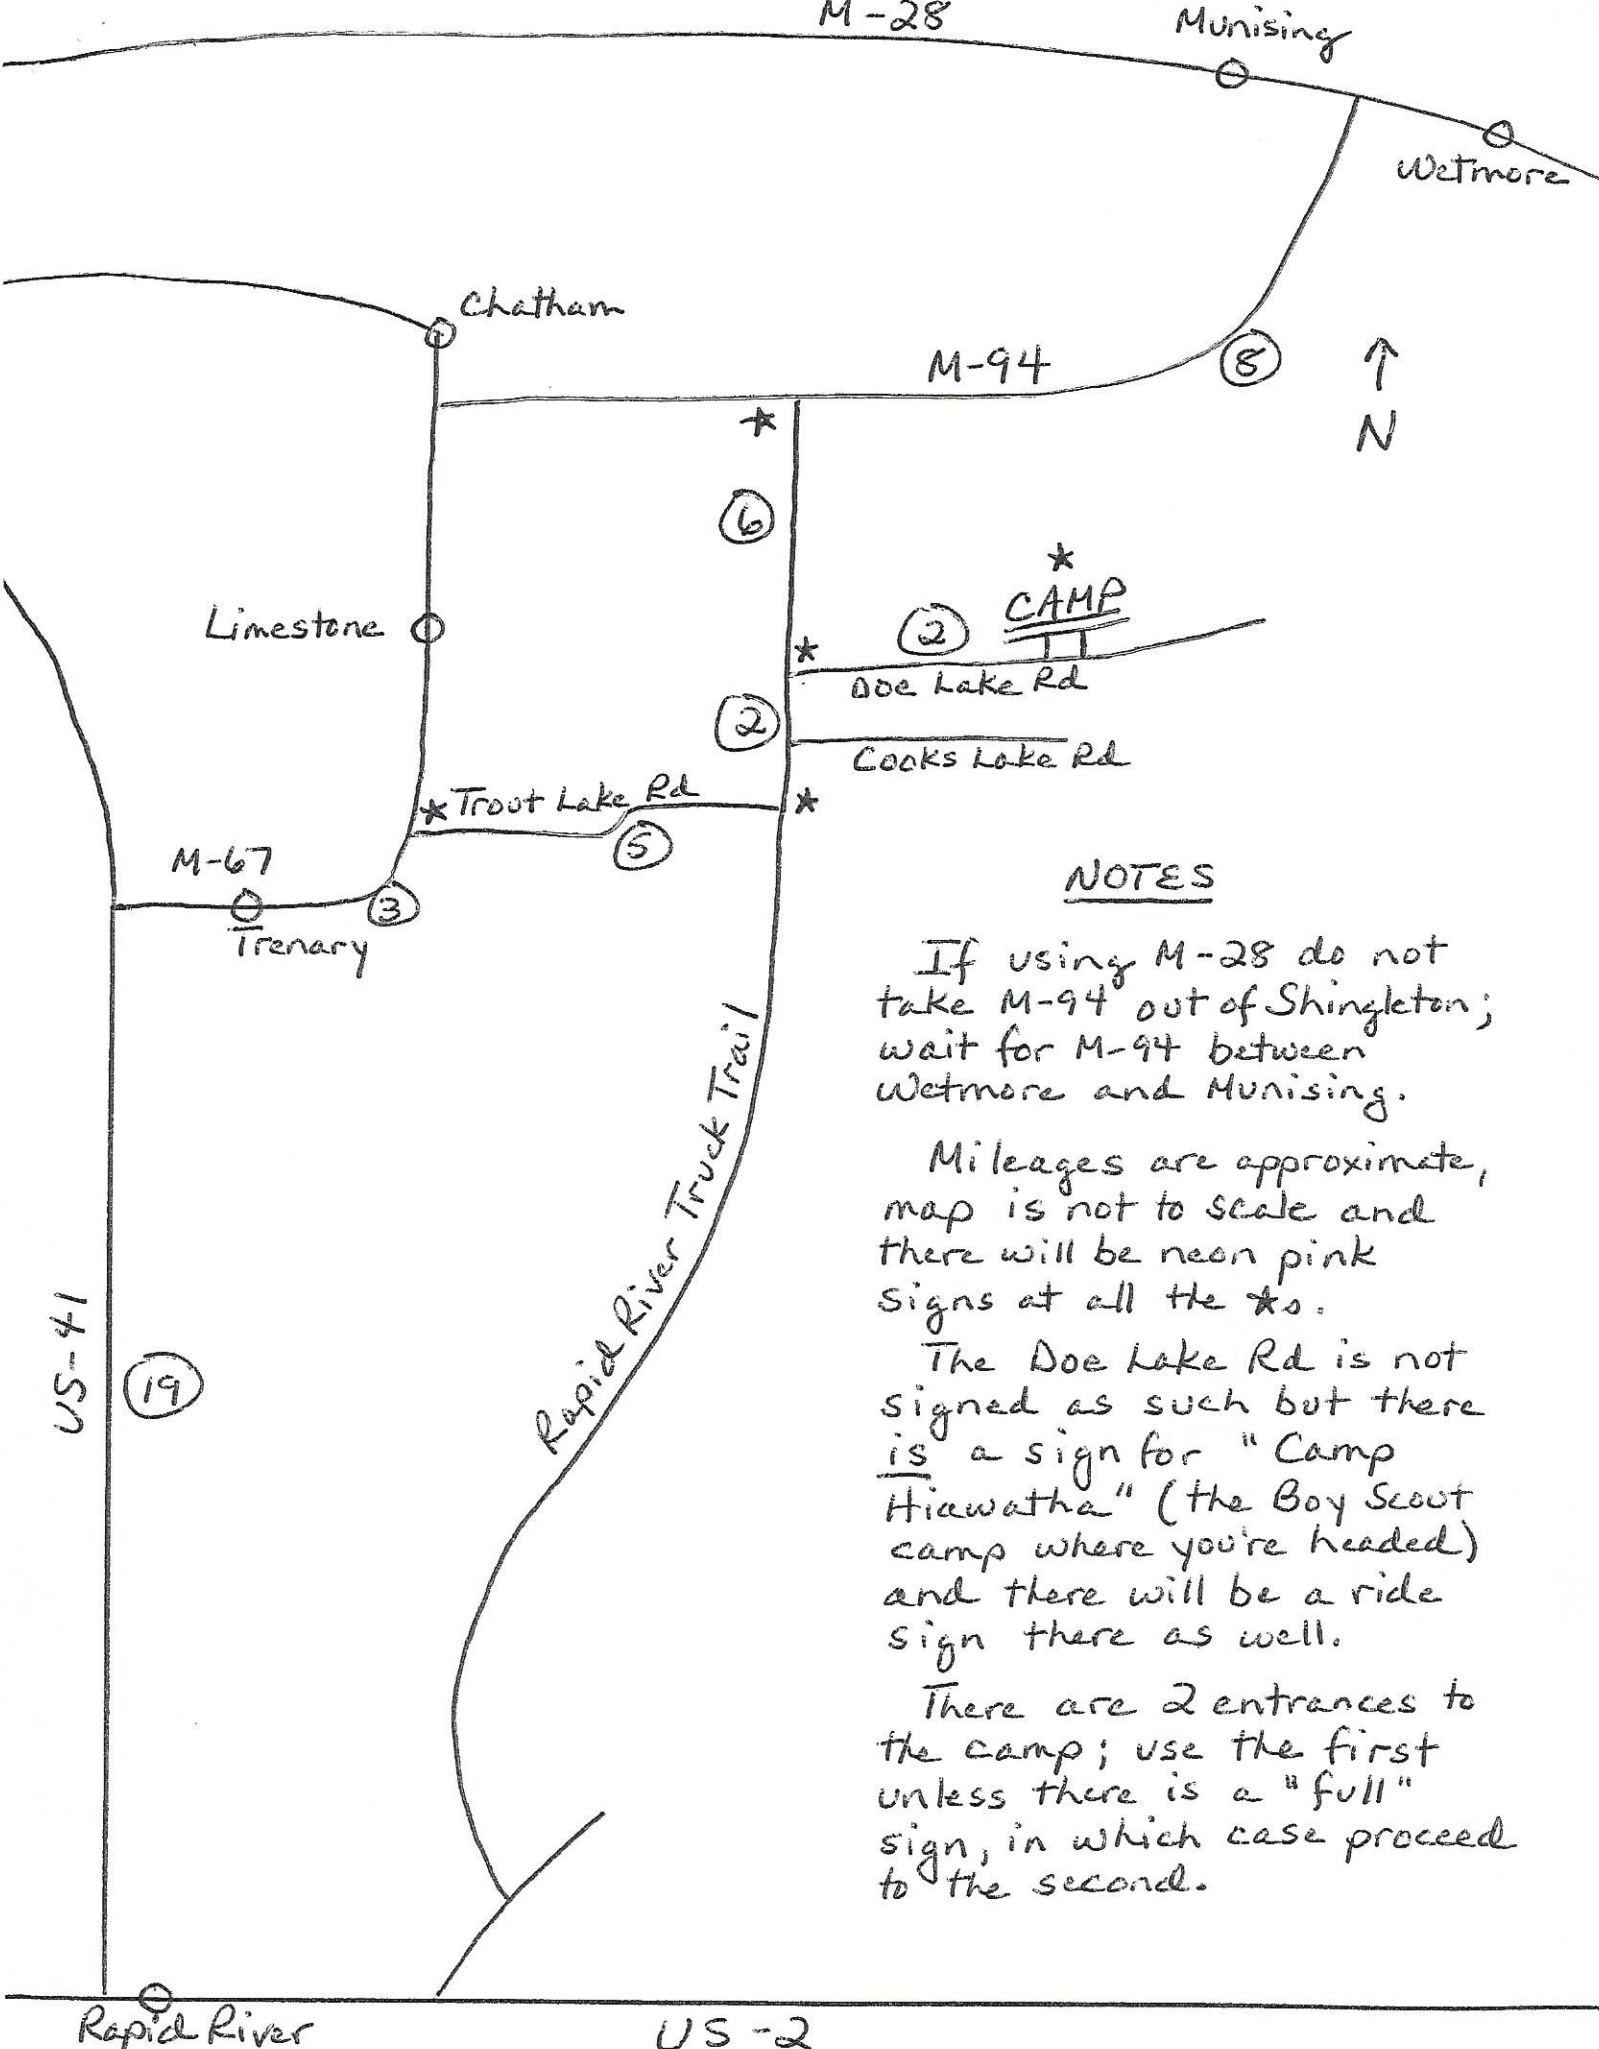 M-28
Munising
Wetmore
Chatham
M-94
8
N
★
6
★
CAMP
2
Limestone
★
Doe Lake Rd
2
Cooks Lake Rd
★ Trout Lake Rd ★
5
M-67
3
Trenary
NOTES
If using M-28 do not
take M-94 out of Shingleton;
wait for M-94 between
Wetmore and Munising.
Mileages are approximate,
map is not to scale and
there will be neon pink
signs at all the ★s.
The Doe Lake Rd is not
signed as such but there
is a sign for "Camp
Hiawatha" (the Boy Scout
camp where you're headed)
and there will be a ride
sign there as well.
There are 2 entrances to
the camp; use the first
unless there is a "full"
sign, in which case proceed
to the second.
Rapid River Truck Trail
US-41
19
Rapid River
US-2